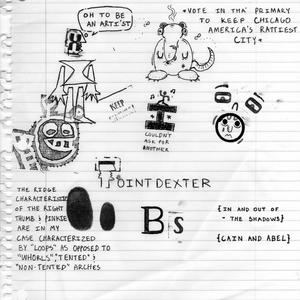 OH TO BE
AN ARTI'ST
"VOTE IN THA' PRIMARY
TO KEEP CHICAGO
AMERICA'S RATTIEST
CITY"
KEEP
COULDN'T
ASK FOR
ANOTHER
POINTDEXTER
THE RIDGE
CHARACTERISTIC
OF THE RIGHT
THUMB & PINKIE
ARE IN MY
CASE CHARACTERIZED
BY "LOOPS" AS OPPOSED TO
"WHORLS", "TENTED" &
"NON-TENTED" ARCHES
B's
{IN AND OUT OF
THE SHADOWS}
{CAIN AND ABEL}